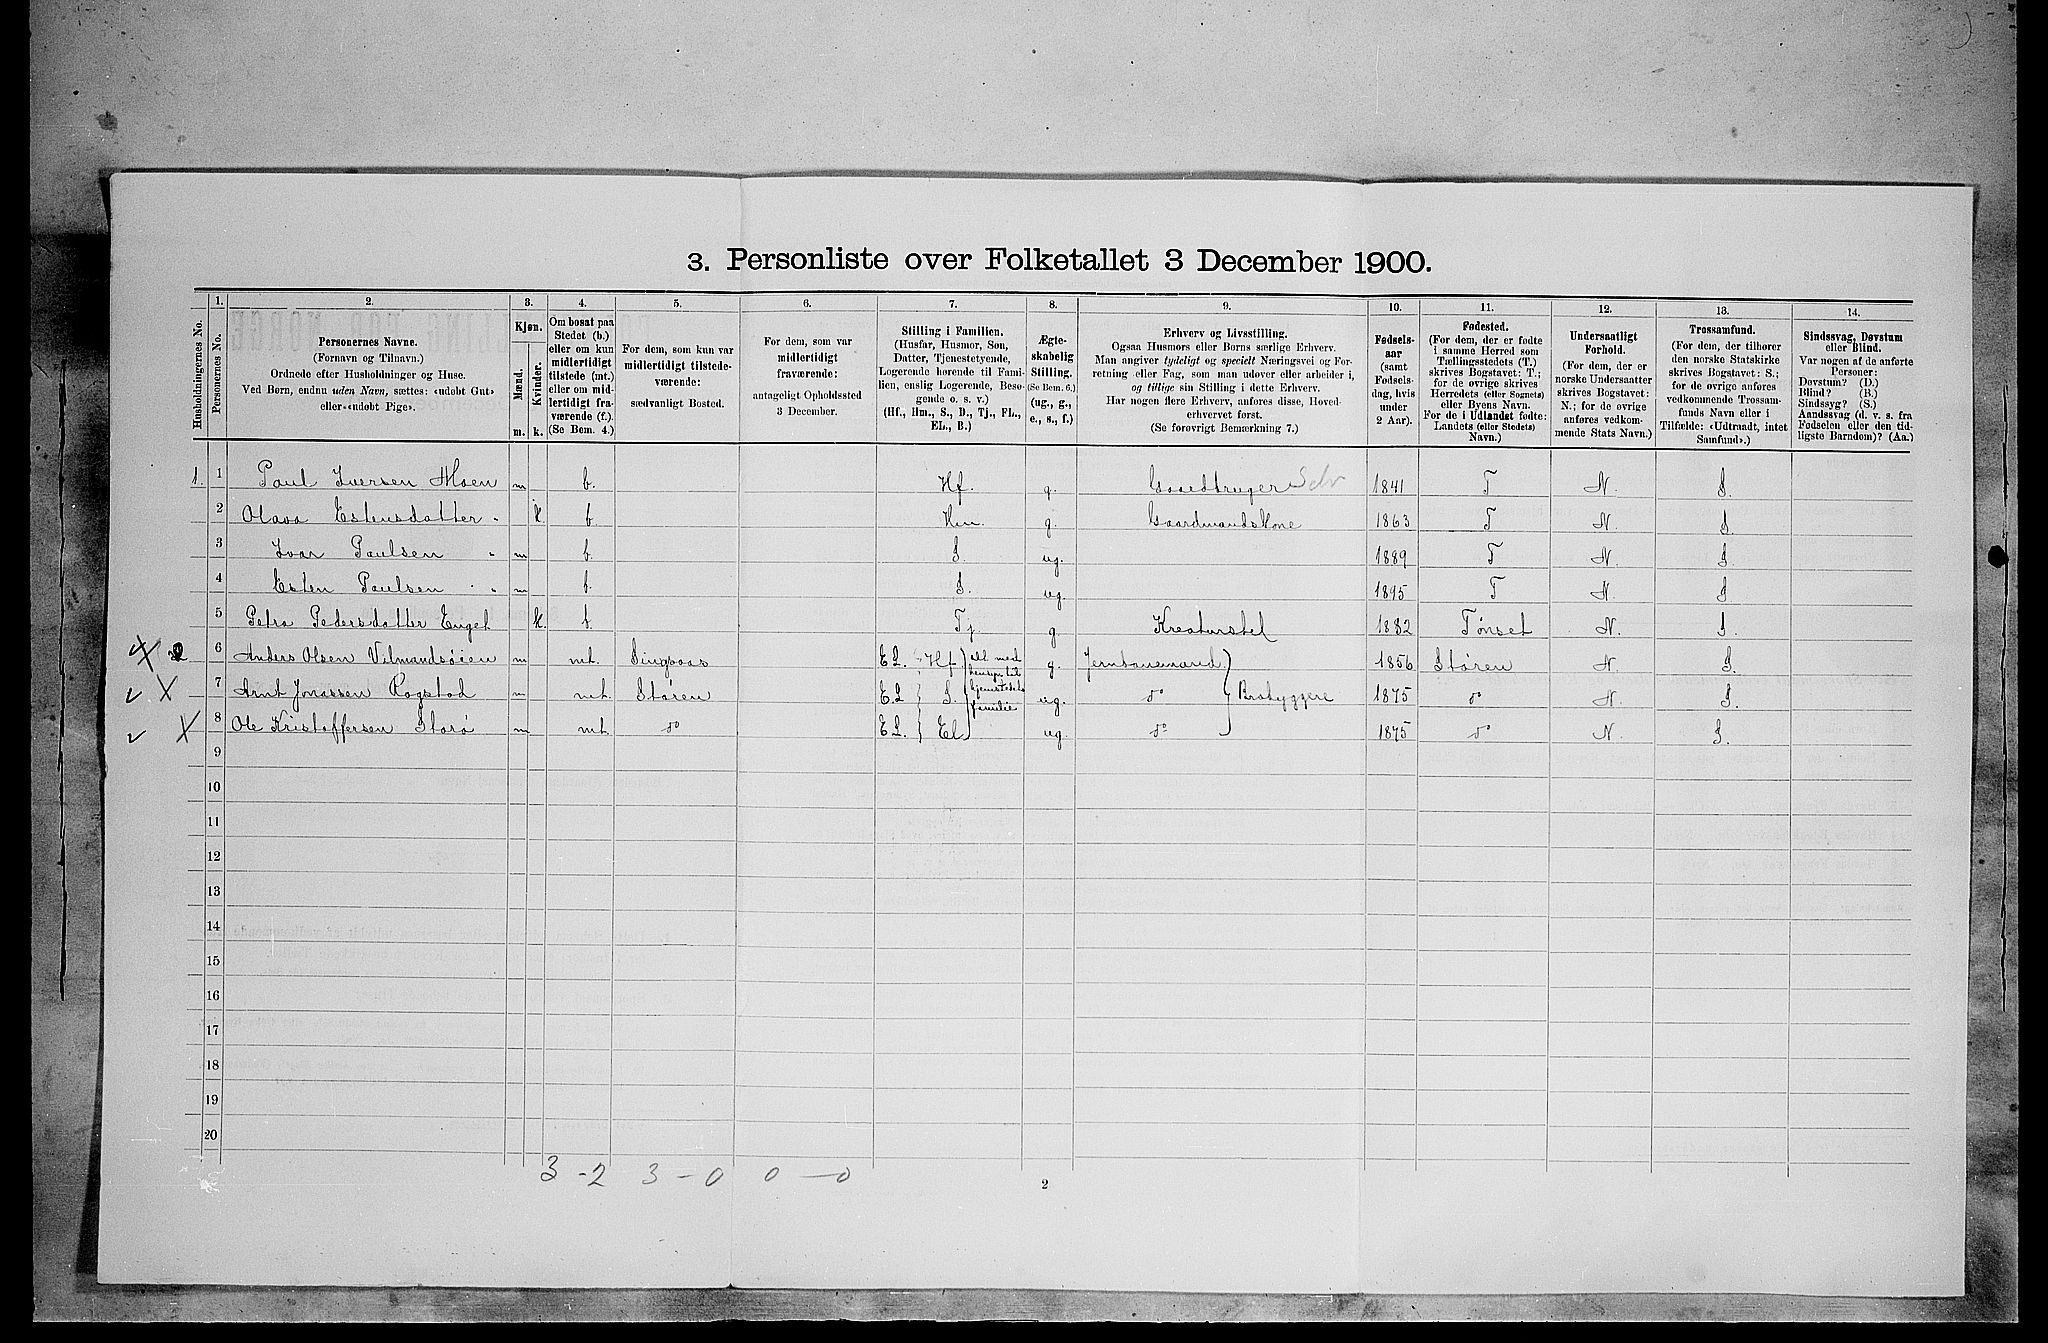 3. Personliste over Folketallet 3 December 1900.
Husholdningernes No.
1. Personernes No.
2. Personernes Navne.
(Fornavn og Tilnavn.)
Ordnede efter Husholdninger og Huse.
Ved Børn, endnu uden Navn, sættes: «udøbt Gut»
eller «udøbt Pige».
3. Kjøn.
Mænd. m.
Kvinder. k.
4. Om bosat paa
Stedet (b.)
eller om kun
midlertidigt
tilstede (mt.)
eller om mid-
lertidigt fra-
værende (f.).
(Se Bem. 4.)
5. For dem, som kun var
midlertidigt tilstede-
værende:
sædvanligt Bosted.
6. For dem, som var
midlertidigt
fraværende:
antageligt Opholdssted
3 December.
7. Stilling i Familien.
(Husfar, Husmor, Søn,
Datter, Tjenestetyende,
Logerende hørende til Fami-
lien, enslig Logerende, Besø-
gende o. s. v.)
(Hf., Hm., S., D., Tj., FL.,
EL., B.)
8. Ægte-
skabelig
Stilling.
(Se Bem. 6.)
(ug., g.,
e., s., f.)
9. Erhverv og Livsstilling.
Ogsaa Husmors eller Børns særlige Erhverv.
Man angiver tydeligt og specielt Næringsvei og For-
retning eller Fag, som man udøver eller arbeider i,
og tillige sin Stilling i dette Erhverv.
Har nogen flere Erhverv, anføres disse, Hoved-
erhvervet først.
(Se forøvrigt Bemærkning 7.)
10. Fødsels-
aar
(samt
Fødsels-
dag, hvis
under
2 Aar).
11. Fødested.
(For dem, der er fødte
i samme Herred som
Tællingsstedets (T.),
skrives Bogstavet: T.;
for de øvrige skrives
Herredets (eller Sognets)
eller Byens Navn.
For de i Udlandet fødte:
Landets (eller Stedets)
Navn.)
12. Undersaatligt
Forhold.
(For dem, der er
norske Undersaatter
skrives Bogstavet:
N.; for de øvrige
anføres vedkom-
mende Stats Navn.)
13. Trossamfund.
(For dem, der tilhører
den norske Statskirke
skrives Bogstavet: S.;
for de øvrige anføres
vedkommende Trossam-
funds Navn eller i
Tilfælde: «Udtraadt, intet
Samfund».)
14. Sindssvag, Døvstum
eller Blind.
Var nogen af de anførte
Personer:
Døvstum? (D.)
Blind? (B.)
Sindssyg? (S.)
Aandssvag (d. v. s. fra
Fødselen eller den tid-
ligste Barndom)? (Aa.)
1. 1 Paul Iversen Moen m b. Hf. g. Gaardbruger Selv 1841 T N. S.
2 Olava Estensdatter " k b. Hm. g. Gaardmandskone 1863 T N. S
3 Ivar Paulsen " m b. S. ug. 1889 T N. S.
4 Esten Paulsen " m b. S. ug. 1895 T N. S
5 Petra Pedersdatter Enget k b. Tj. g Kreaturstel 1882 Tønset N. S.
2 6 Anders Olsen Vilmandsöien m mt. Singsaas EL. Hf g. Jernbanemand 1856 Støren N. S.
7 Arnt Jonassen Rogstad m mt. Støren EL S. ug. do Brobyggere 1875 do N. S.
8 Ole Kristoffersen Storø m mt. do EL. El ug. do 1875 do N. S.
alt med
hensyn til
hjemstedets
familie
9
10
11
12
13
14
15
16
17
18
19
20
3 - 2 3 - 0 0 - 0
2